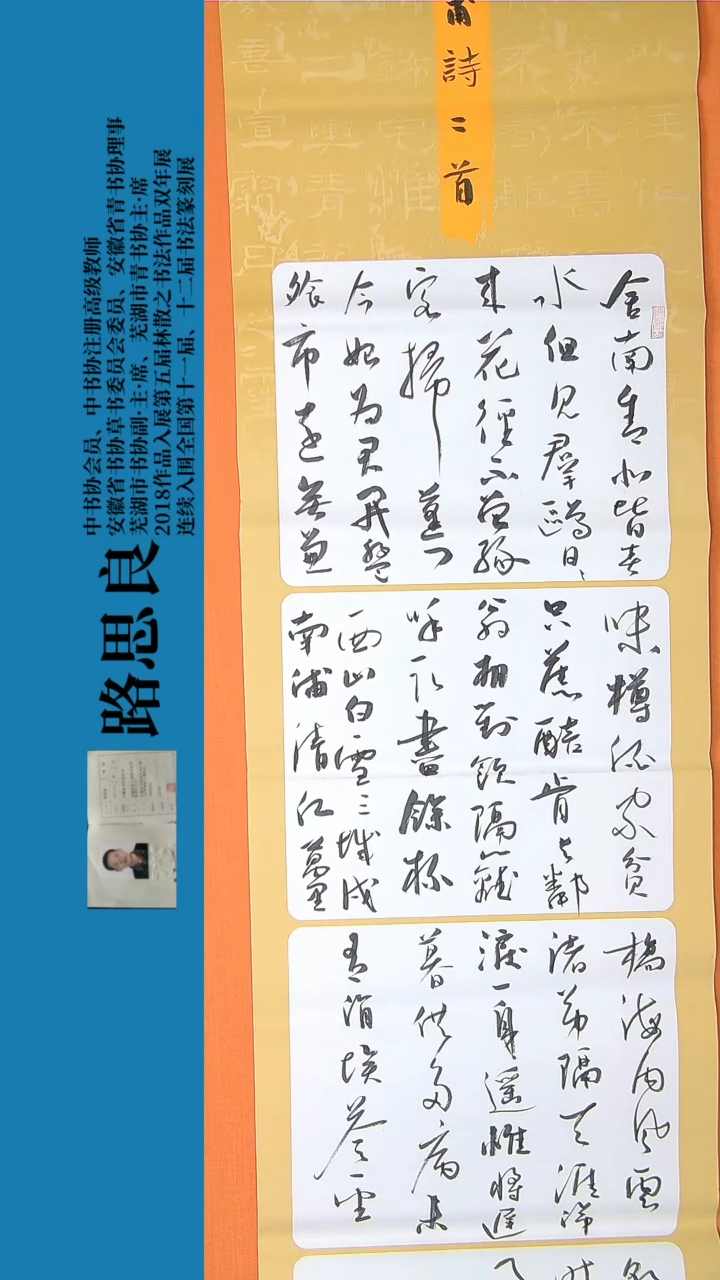 路思良
中书协会员、中书协注册高级教师
安徽省书协草书委员会委员、安徽省青书协理事
芜湖市书协副·主·席、芜湖市青书协主·席
2018作品入展第五届林散之书法作品双年展
连续入围全国第十一届、十二届书法篆刻展
甫詩二首
舍南舍北皆春
水但見群鷗日〻
来花徑不曾緣
客掃蓬门
今始为君开盤
飧市遠無兼
味樽酒家貧
只舊醅肯与鄰
翁相对飲隔籬
呼取盡餘杯
西山白雪三城戍
南浦清江萬里
橋海内风塵
諸弟隔天涯涕
淚一身遥惟將遲
暮供多病未
有涓埃答聖